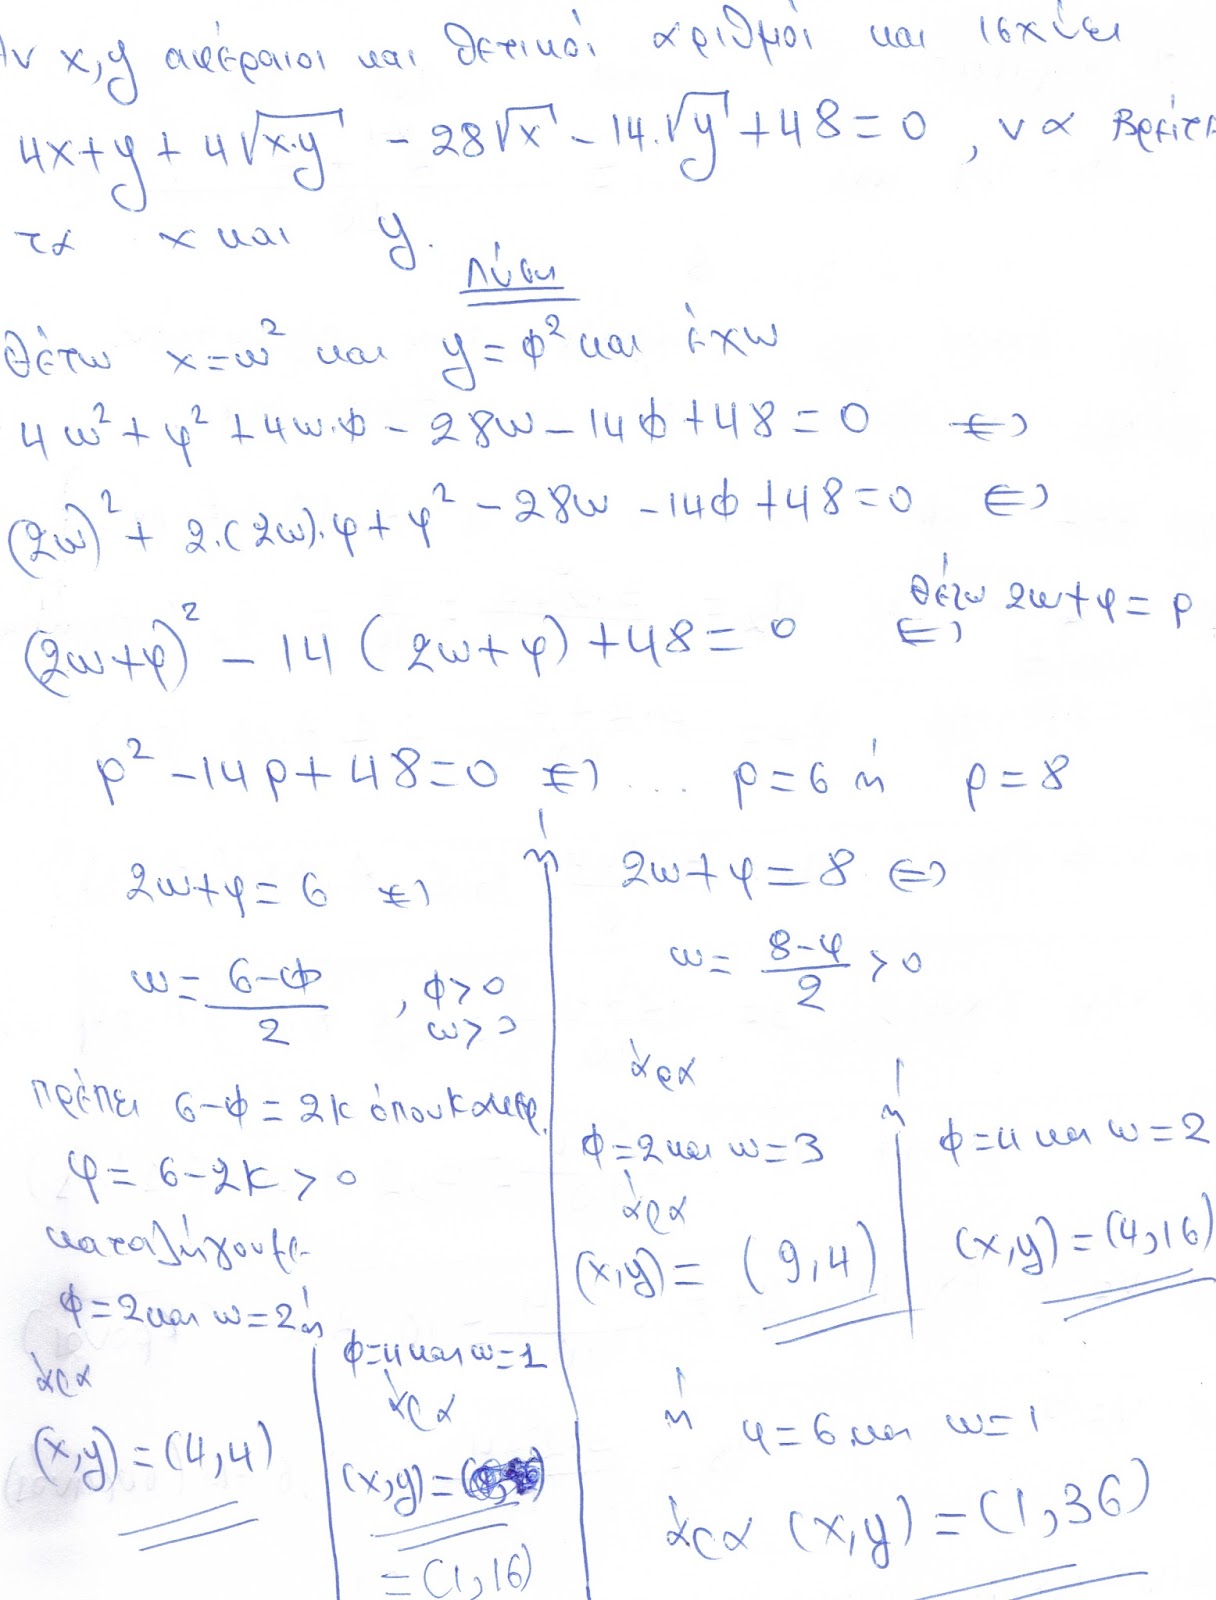 ν x,y ακέραιοι και θετικοί αριθμοί και ισχύει
4x+y+4√x·y - 28√x - 14·√y + 48 = 0 , να βρείτε
τα x και y.
Λύση
θέτω x=ω² και y=φ² και έχω
4ω²+φ²+4ω·φ-28ω-14φ+48=0 ⇔
(2ω)²+2·(2ω)·φ+φ²-28ω-14φ+48=0 ⇔
(2ω+φ)²-14(2ω+φ)+48=0 ⇔ θέτω 2ω+φ=ρ
ρ²-14ρ+48=0 ⇔ ... ρ=6 ή ρ=8
2ω+φ=6 ⇔
ω=(6-φ)/2 , φ>0
ω>0
πρέπει 6-φ=2κ όπου κ ακέρ.
φ=6-2κ>0
καταλήγουμε
φ=2 και ω=2 ή
άρα
(x,y)=(4,4)
φ=4 και ω=1
άρα
(x,y)=
=(1,16)
ή
2ω+φ=8 ⇔
ω=(8-φ)/2>0
άρα
φ=2 και ω=3
άρα
(x,y)=(9,4)
ή
φ=4 και ω=2
(x,y)=(4,16)
ή φ=6 και ω=1
άρα (x,y)=(1,36)